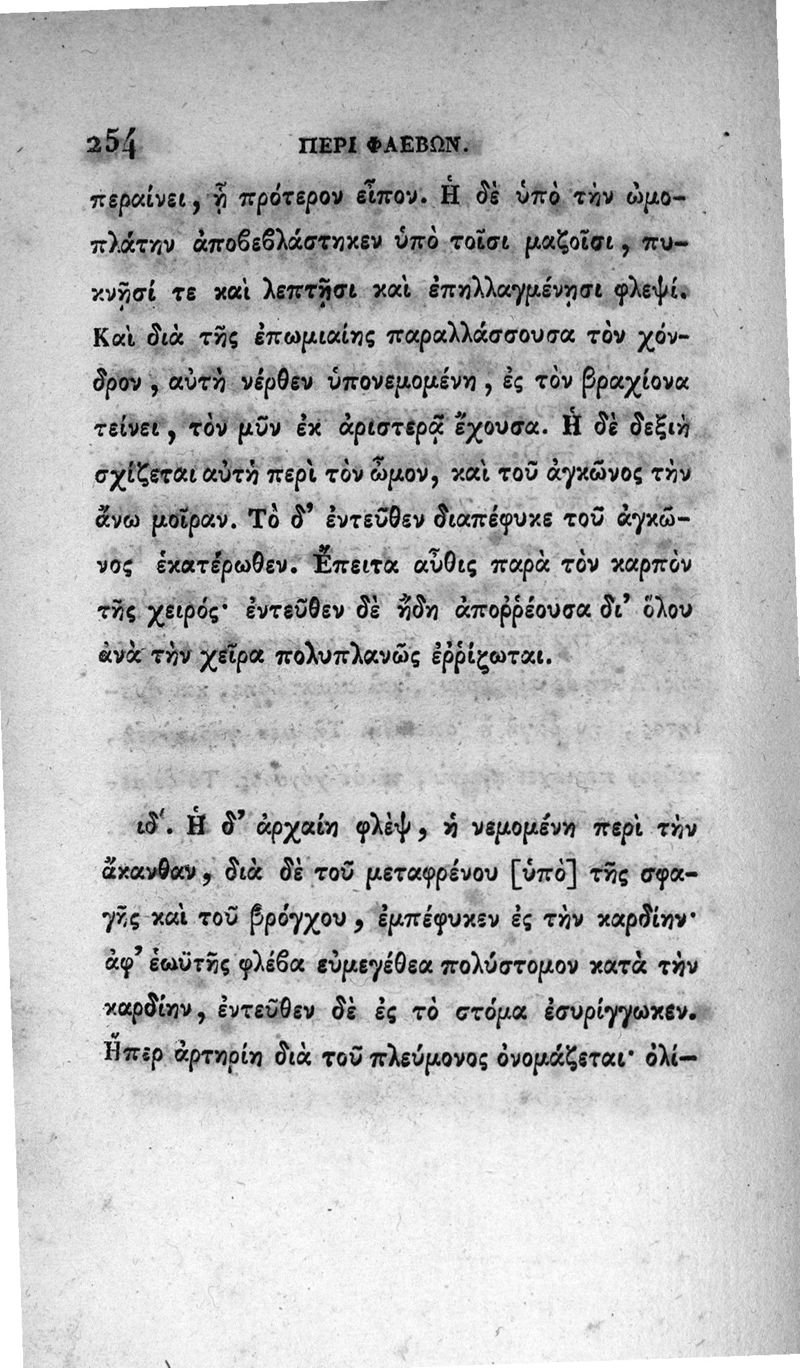 254 ΠΕΡΙ ΦΛΕΒΩΝ.
περαίνει, ᾗ πρότερον εἶπον. Ἡ δὲ ὑπὸ τὴν ὠμο-
πλάτην ἀποβεβλάστηκεν ὑπὸ τοῖσι μαζοῖσι, πυ-
κνῇσί τε καὶ λεπτῇσι καὶ ἐπηλλαγμένῃσι φλεψί.
Καὶ διὰ τῆς ἐπωμιαίης παραλλάσσουσα τὸν χόν-
δρον, αὐτὴ νέρθεν ὑπονεμομένη, ἐς τὸν βραχίονα
τείνει, τὸν μῦν ἐκ ἀριστερᾷ ἔχουσα. Ἡ δὲ δεξιὴ
σχίζεται αὐτὴ περὶ τὸν ὦμον, καὶ τοῦ ἀγκῶνος τὴν
ἄνω μοῖραν. Τὸ δ’ ἐντεῦθεν διαπέφυκε τοῦ ἀγκῶ-
νος ἑκατέρωθεν. Ἔπειτα αὖθις παρὰ τὸν καρπὸν
τῆς χειρός· ἐντεῦθεν δὲ ἤδη ἀποῤῥέουσα δι’ ὅλου
ἀνὰ τὴν χεῖρα πολυπλανῶς ἐῤῥίζωται.
ιδ΄. Ἡ δ’ ἀρχαίη φλὲψ, ἡ νεμομένη περὶ τὴν
ἄκανθαν, διὰ δὲ τοῦ μεταφρένου [ὑπὸ] τῆς σφα-
γῆς καὶ τοῦ βρόγχου, ἐμπέφυκεν ἐς τὴν καρδίην·
ἀφ’ ἑωϋτῆς φλέβα εὐμεγέθεα πολύστομον κατὰ τὴν
καρδίην, ἐντεῦθεν δὲ ἐς τὸ στόμα ἐσυρίγγωκεν.
Ἥπερ ἀρτηρίη διὰ τοῦ πλεύμονος ὀνομάζεται· ὀλί-